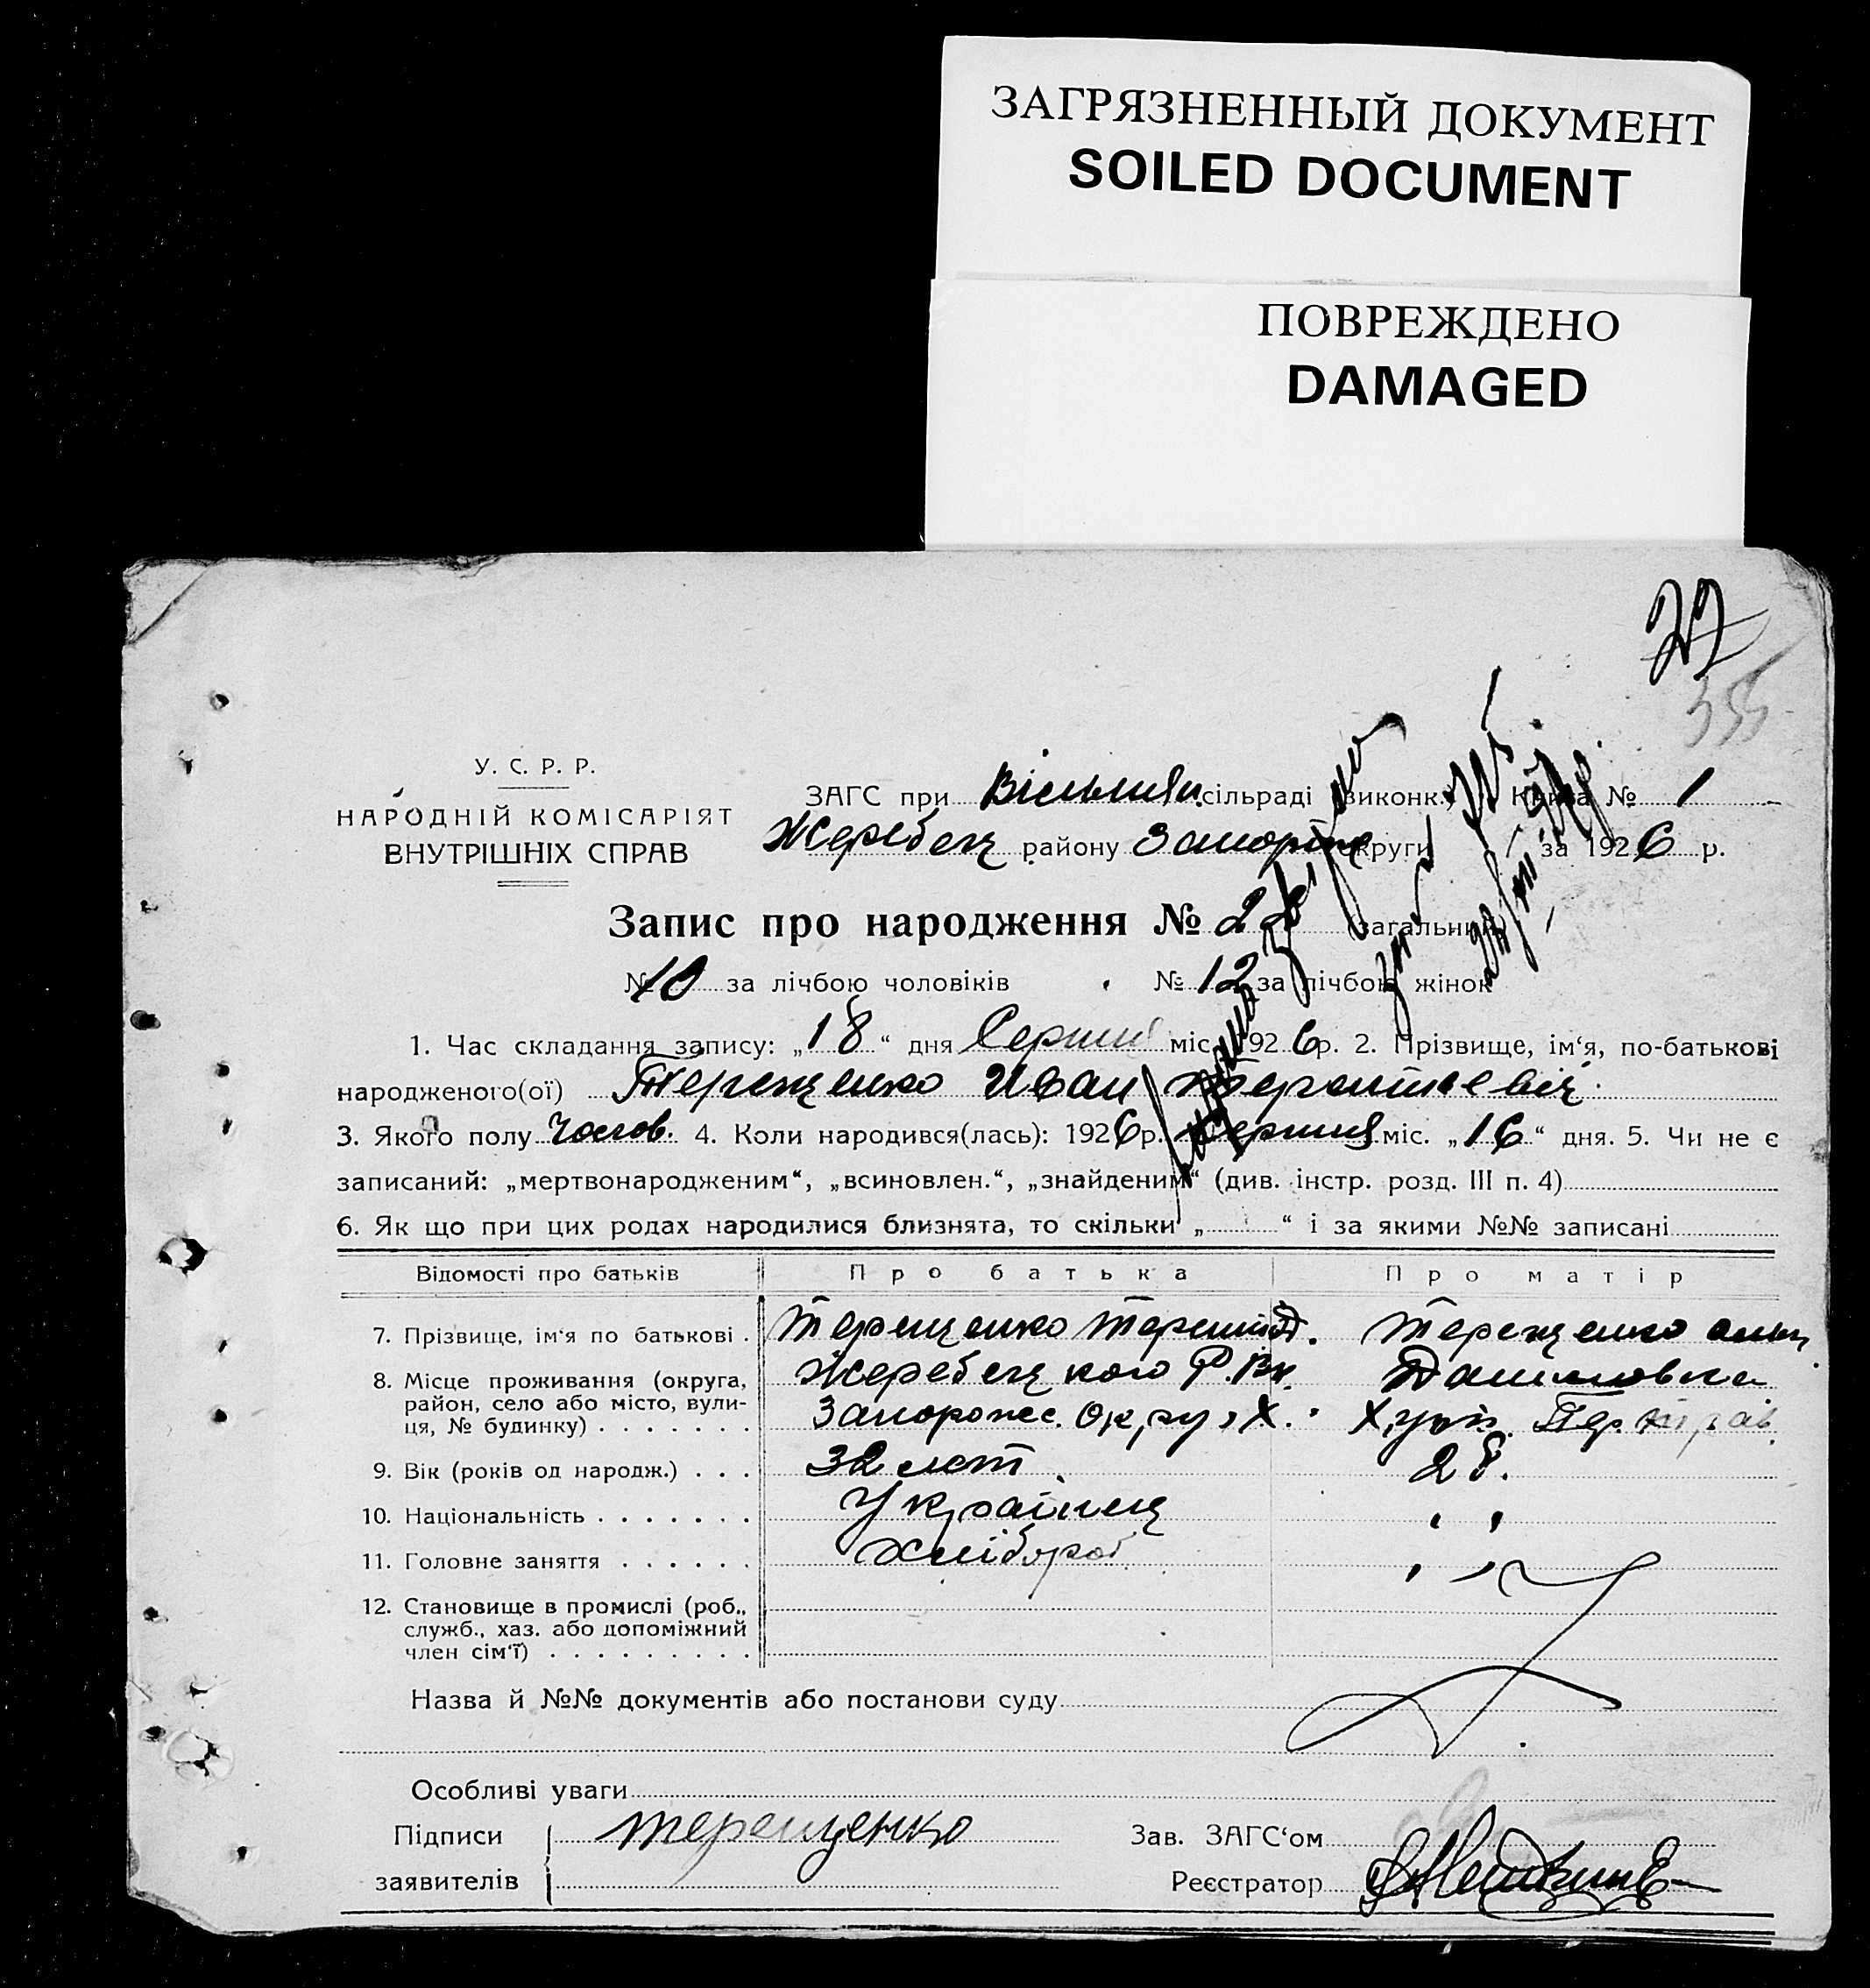 ЗАГРЯЗНЕННЫЙ ДОКУМЕНТ
SOILED DOCUMENT
ПОВРЕЖДЕНО
DAMAGED
355
У. С. Р. Р.
НАРОДНІЙ КОМІСАРІЯТ
ВНУТРІШНІХ СПРАВ
ЗАГС при сільраді (виконк.) Книга № 1
Жеребец району Запоріж округи за 1926 р.
Запис про народження № 22 (загальний)
№ 10 за лічбою чоловіків № 12 за лічбою жінок
1. Час складання запису: „18“ дня Серпня міс. 1926 р. 2. Прізвище, ім‘я, по-батькові
народженого(ої) Терещенко Иван Терентиевіч
3. Якого полу Чолов. 4. Коли народився(лась): 1926 р. Серпня міс. „16“ дня. 5. Чи не є
записаний: „мертвонародженим“, „всиновлен.“, „знайденим“ (див. інстр. розд. III п. 4)
6. Як що при цих родах народилися близнята, то скільки „ “ і за якими №№ записані
Відомості про батьків Про батька Про матір
7. Прізвище, ім‘я по батькові . Терещенко Терентій Д. Терещенко
8. Місце проживання (округа, Жеребецкого Р.В.К. Даниловна
район, село або місто, вули- Запорожс. Округ. Х. Хут.
ця, № будинку) . . . . . . .
9. Вік (років од народж.) . . . 32 лет. 28.
10. Національність . . . . . . . Українец " "
11. Головне заняття . . . . . . Хлібороб " "
12. Становище в промислі (роб.,
служб., хаз. або допоміжний
член сім‘ї) . . . . . . . . .
Назва й №№ документів або постанови суду
Особливі уваги
Підписи Терещенко Зав. ЗАГС‘ом
заявителів Реєстратор